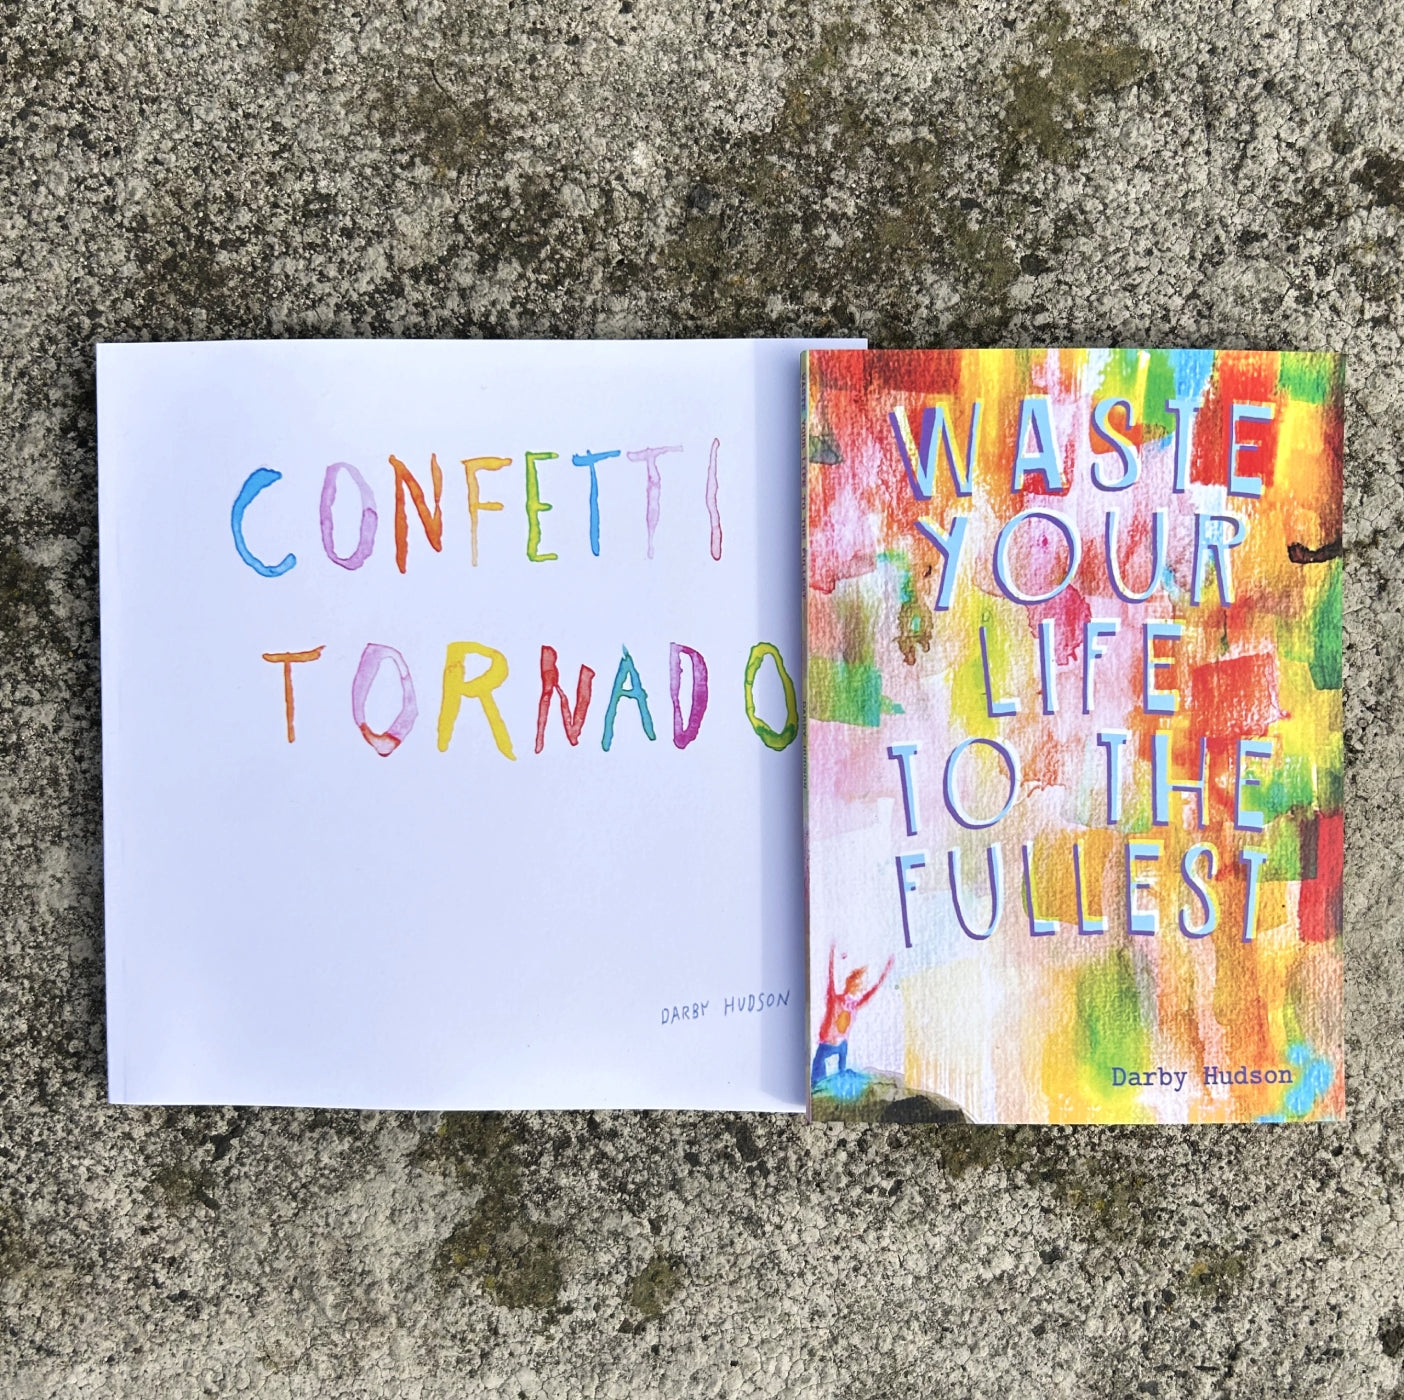 CONFETTI
TORNADO
DARBY HUDSON
WASTE
YOUR
LIFE
TO THE
FULLEST
Darby Hudson